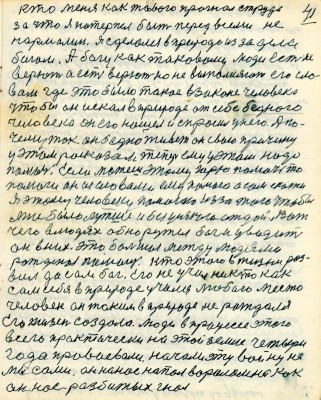 кто меня как такого прогнал с труда 41
за что я потерпел быть перед всеми не
нармалим. Я сделался в природе из за дела
богом. А богу как таковому люди есть не
верют а есть верют но не выполняют его сло-
вам где это было такое в законе человека
чтобы он искал в природе от себе бедного
человека он его нашел и спросил у него. А по-
чему ж ты так он бедно живет он свою причину
у этом рассказал теперь ему у этом надо
помочь. Если можеш этому горю помочь то
помоги он и словами ему помог а сам
Я этому человеку помогаю из за того чтобы
мне было лутше и без него с тобой. Вот
чего в людях обнаружил бог и увидит
он в них. Это болших между людьми
рождения помощ. кто этого в жизни раз-
вил да сам бог. Его не учил никто как
сам себя в природе учил любого место
человек он таким в природе не рождался
его жизнь создала. Люди в процессе этого
всего практически на этой земле четыри
года провоевали, начали эту войну не
мы сами, он на нас напал варилом на как
он нас разбитых гнал